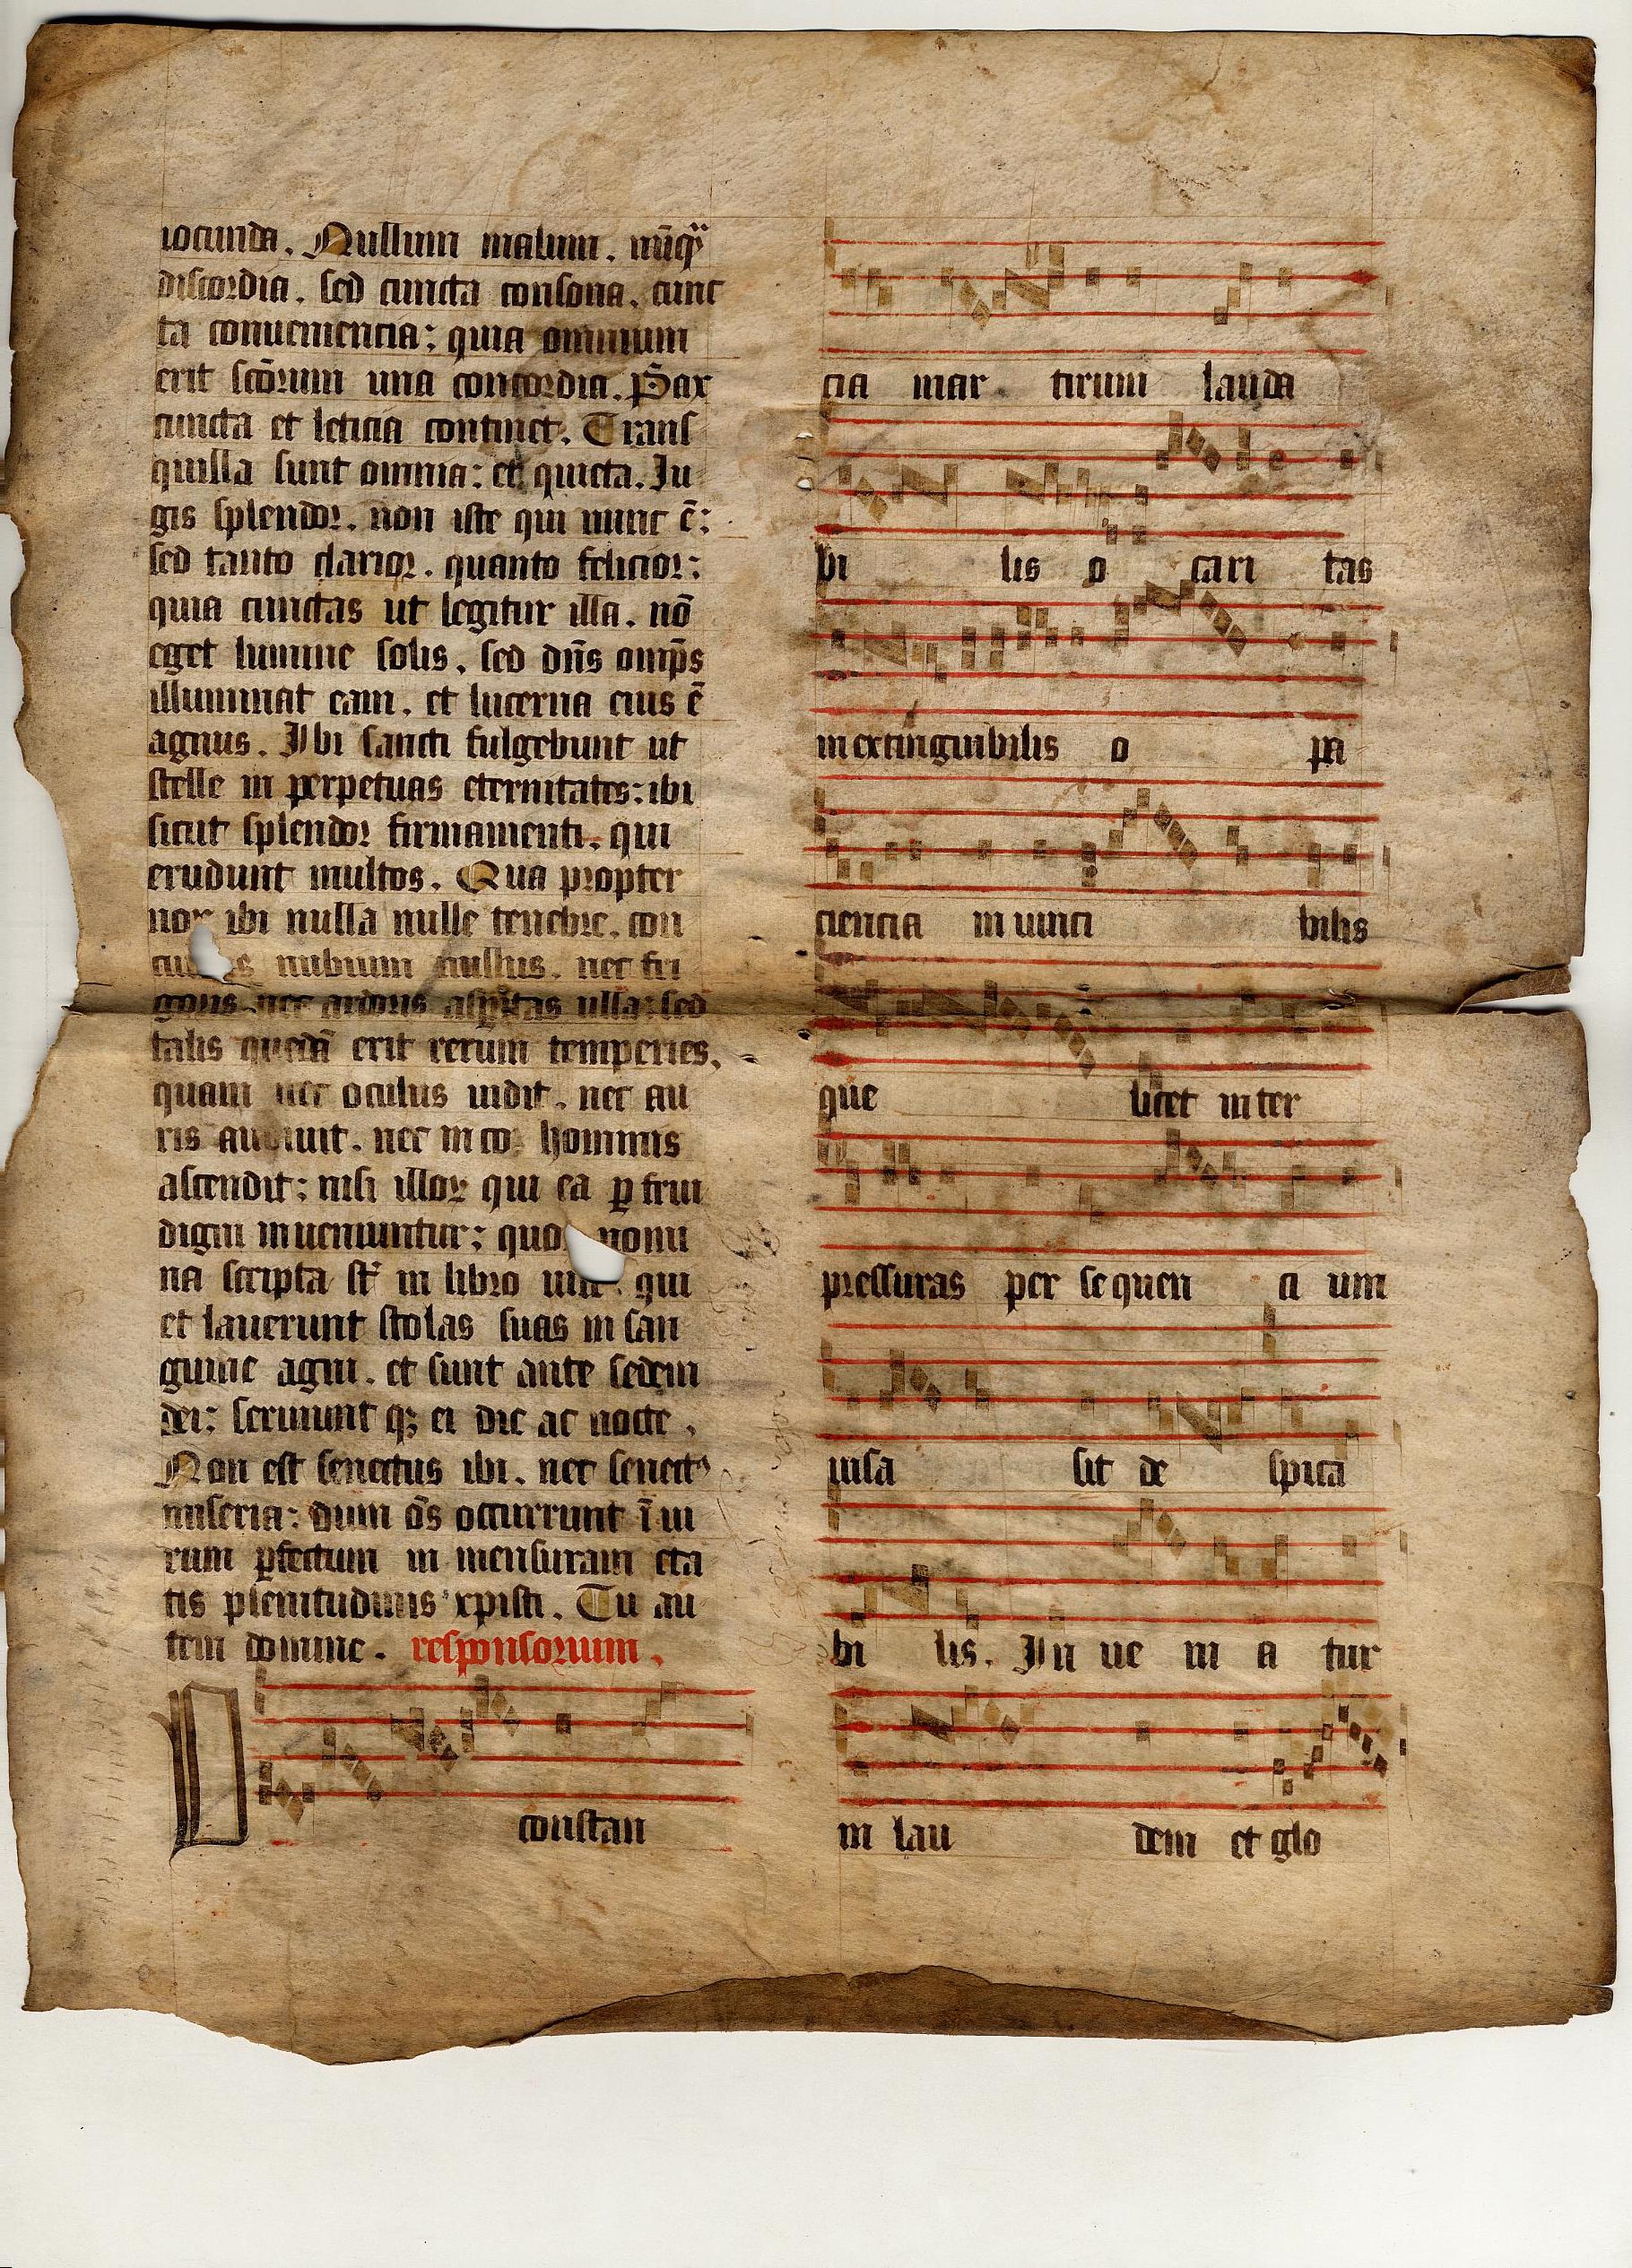 iocunda. Nullum malum. nūqᷓ
discordia. sed cuncta consona. cunc
ta conueniencia: quia omnium
erit scōrum una concordia. Pax
cuncta et leticia continet. Trans
quilla sunt omnia: et quieta. Iu
gis splendor. non iste qui nunc ē:
sed tanto clarior. quanto felicior:
quia ciuitas ut legitur illa. nō
eget lumine solis. sed dn̄s omp̄s
illuminat eam. et lucerna eius ē
agnus. Ibi sancti fulgebunt ut
stelle in perpetuas eternitates: ibi
sicut splendor firmamenti. qui
erudunt multos. Qua propter
nox ibi nulla nulle tenebre. con
nubium nullus. nec fri
goris nec ardoris asp̄itas ulla: sed
talis quedā erit rerum temperies.
quam nec oculus uidit. nec au
ris audiuit. nec in cor hominis
ascendit: nisi illoꝝ qui ea ꝑ frui
digni inueniuntur: quoꝝ nomi
na scripta st̄ in libro uite. qui
et lauerunt stolas suas in san
guine agni. et sunt ante sedem
dei: seruiunt qꝫ ei die ac nocte.
Non est senectus ibi. nec senectꝰ
miseria: dum ōs occurrunt ī ui
rum ꝑfectum in mensuram eta
tis plenitudinis xpisti. Tu au
tem domine. responsorium.
O constan
cia mar tirum lauda
bi lis o cari tas
inextinguibilis o pa
ciencia in uinci bilis
que licet inter
pressuras per sequen ci um
uisa sit de spica
bi lis. In ue ni a tur
in lau dem et glo